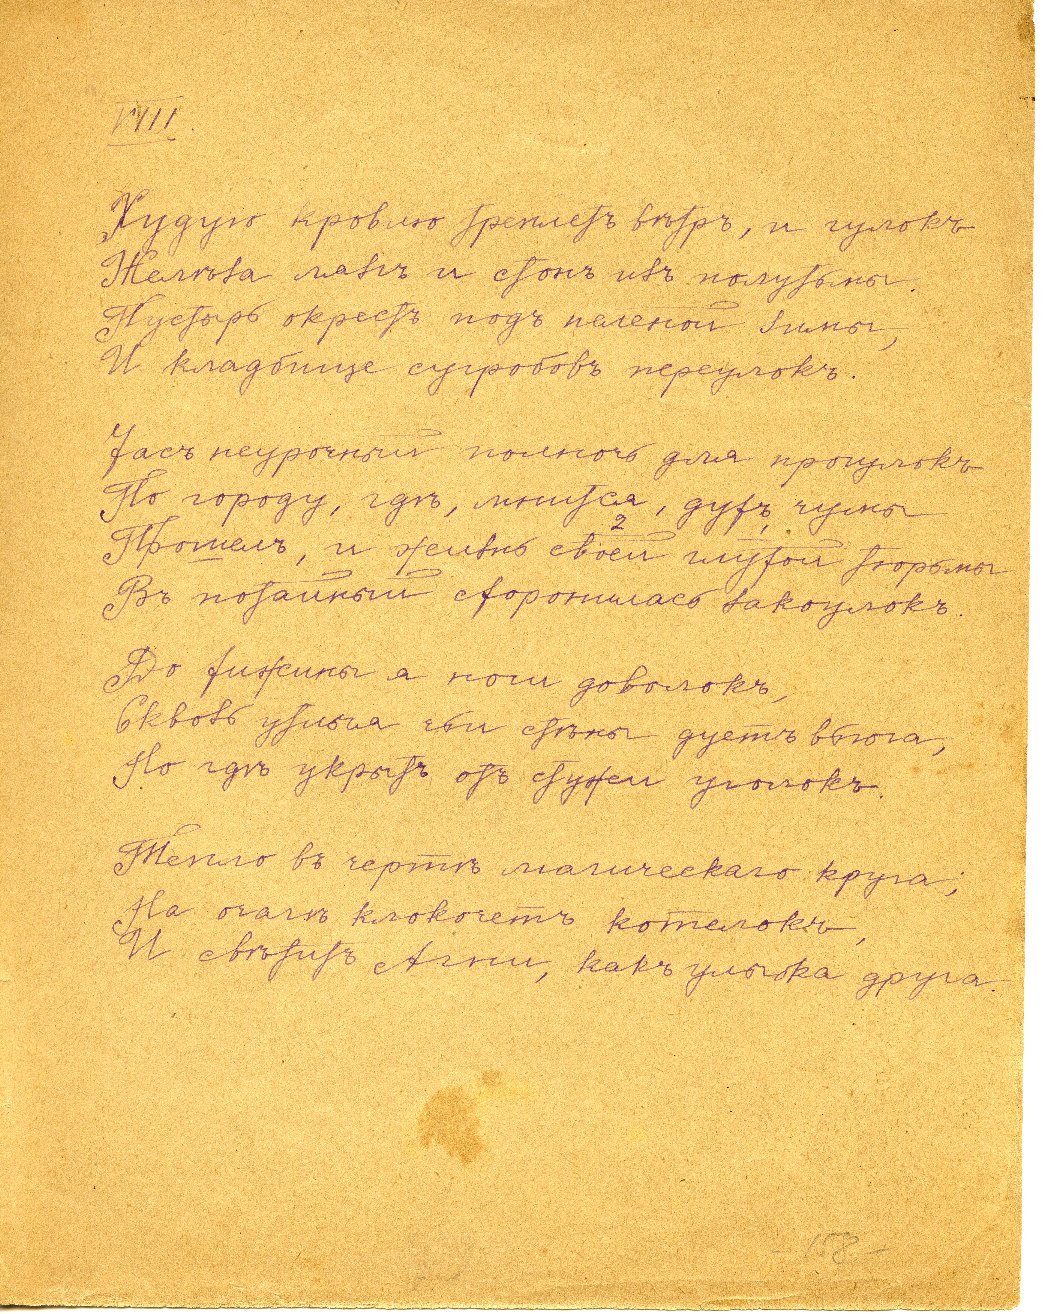 VIII
Худую кровлю треплетъ вѣтръ, и гулокъ
Желѣза лязгъ и стонъ изъ полутьмы.
Пустырь окрестъ подъ пеленой зимы,
И кладбище сугробовъ переулокъ.
Часъ неурочный полночь для прогулокъ
По городу, гдѣ, мнится, духъ чумы
2
Прошелъ, и жизнь своей глухой тюрьмы
Въ потайный схоронилась закоулокъ.
До хижины я ноги доволокъ,
Сквозь утлыя чьи стѣны дуетъ вьюга,
Но гдѣ укрытъ отъ стужи уголокъ.
Тепло въ чертѣ магическаго круга;
На очагѣ клокочетъ котелокъ,
И свѣтитъ Агни, какъ улыбка друга.
- 158 -